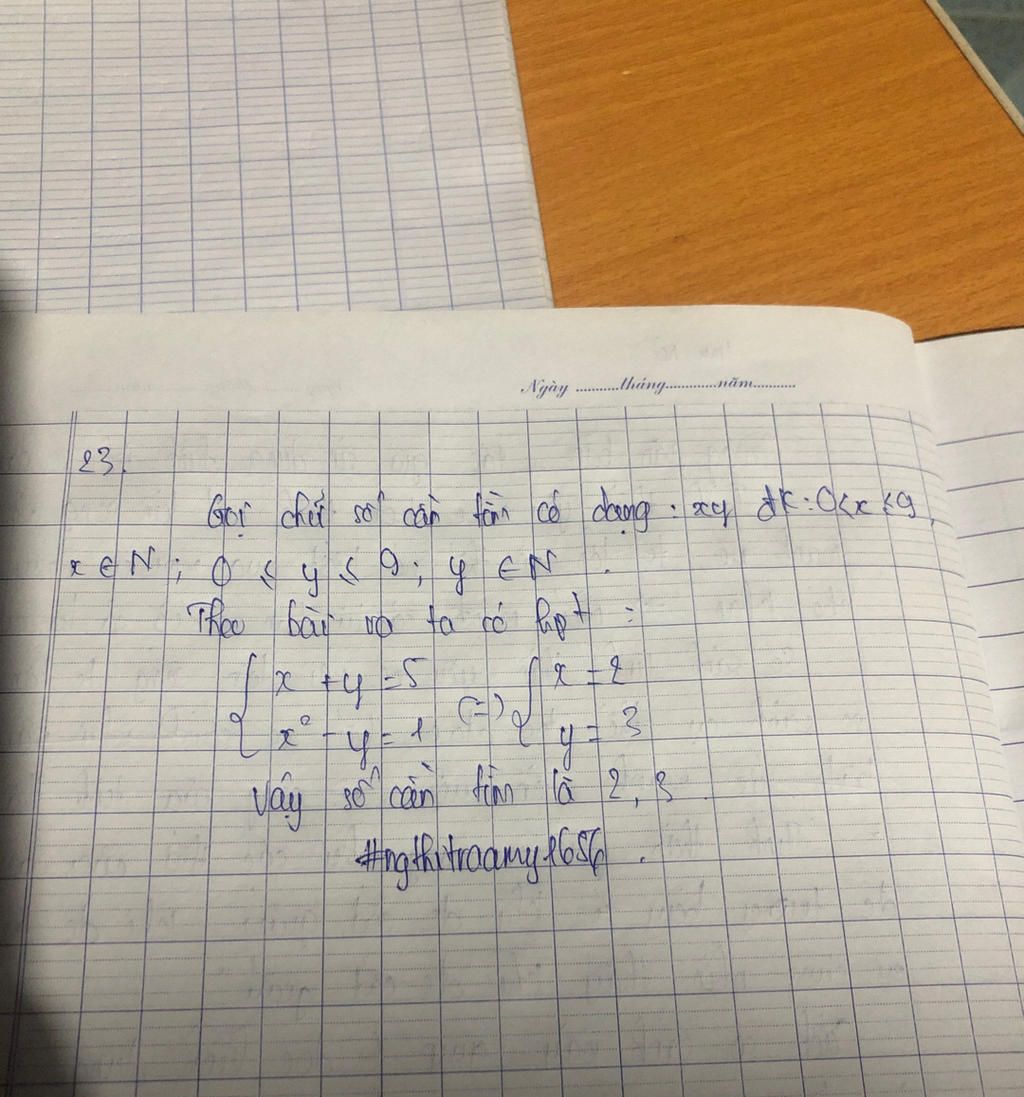 Ngày ...........tháng.............năm...........
23.
Gọi chữ số cần tìm có dạng : xy đk : 0<x≤9,
x ∈ N ; 0 ≤ y ≤ 9 ; y ∈ N .
Theo bài ra ta có hpt :
{ x + y = 5 (=) { x = 2
x² - y = 1 y = 3
Vậy số cần tìm là 2, 3 .
#ngthitraamy1656 .